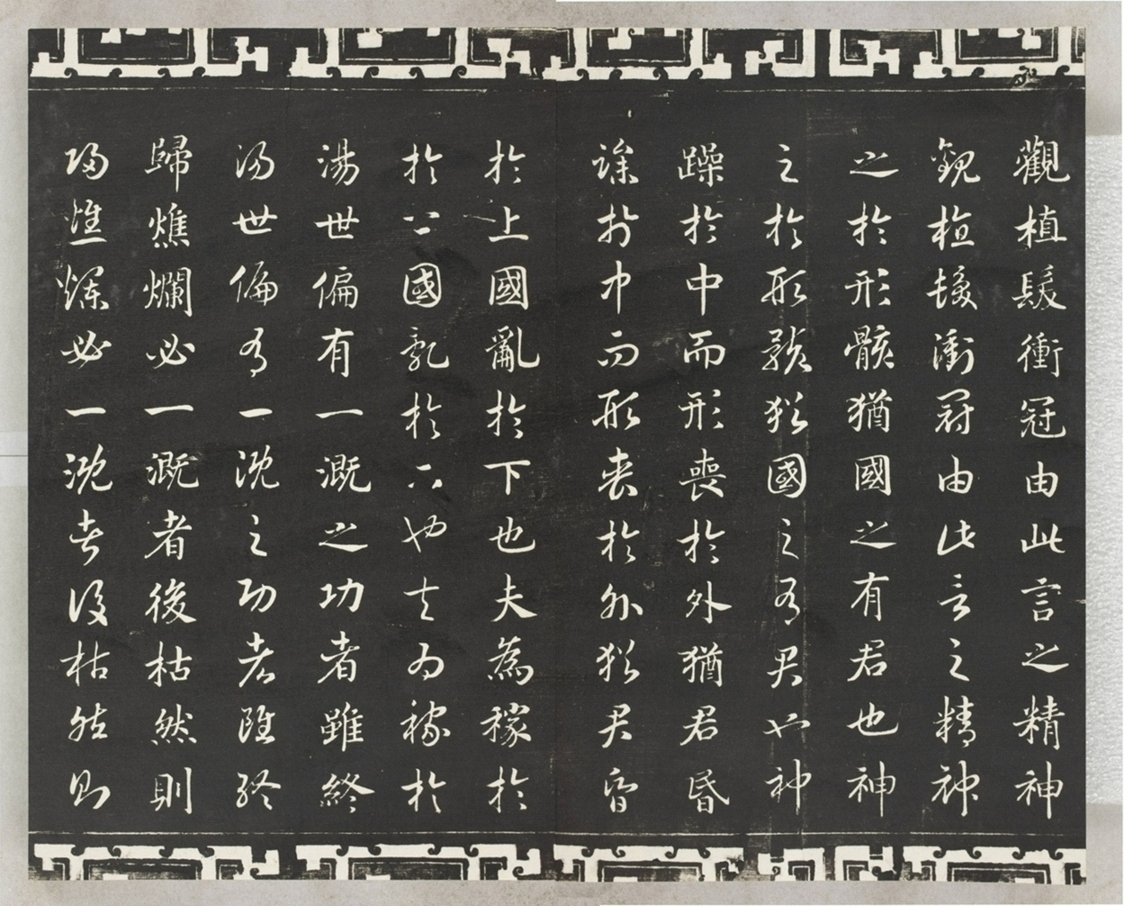 觀植髮衝冠由此言之精神
觀植髮衝冠由此言之精神
之於形骸猶國之有君也神
之於形骸猶國之有君也神
躁於中而形喪於外猶君昏
躁於中而形喪於外猶君昏
於上國亂於下也夫為稼於
於上國亂於下也夫為稼於
湯世偏有一溉之功者雖終
湯世偏有一溉之功者雖終
歸燋爛必一溉者後枯然則
歸燋爛必一溉者後枯然則